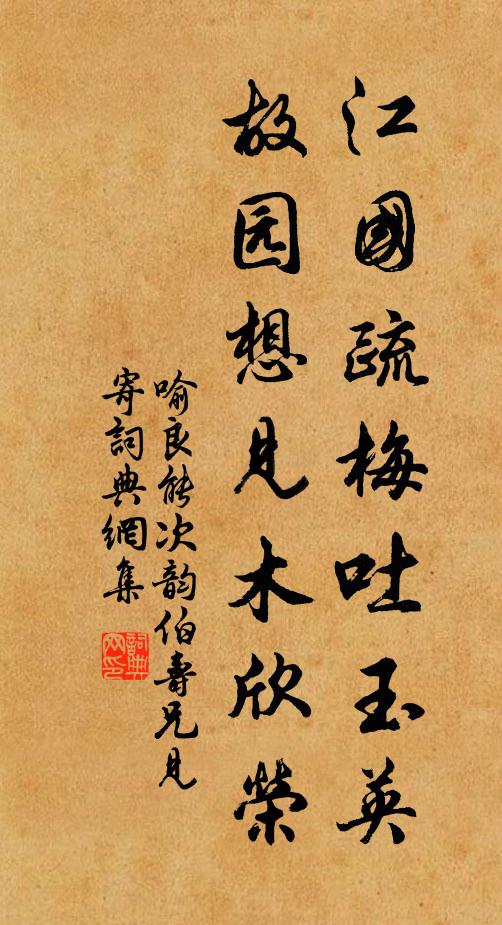 江國疏梅吐玉英
故园想見木欣榮
喻良能次韵伯壽兄見
寄詞典網集
詞典網印